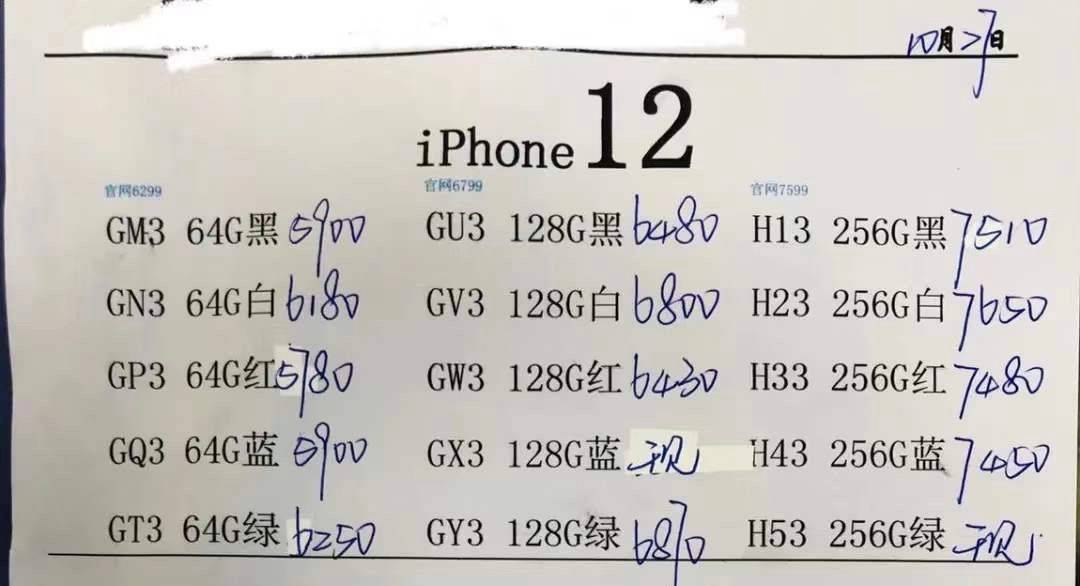 10月27日
iPhone 12
官网6299 官网6799 官网7599
GM3 64G黑 5900 GU3 128G黑 6480 H13 256G黑 7510
GN3 64G白 6180 GV3 128G白 6800 H23 256G白 7650
GP3 64G红 5780 GW3 128G红 6430 H33 256G红 7480
GQ3 64G蓝 5900 GX3 128G蓝 现 H43 256G蓝 7450
GT3 64G绿 6250 GY3 128G绿 6870 H53 256G绿 现